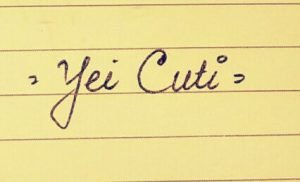 = Yei Cuti =